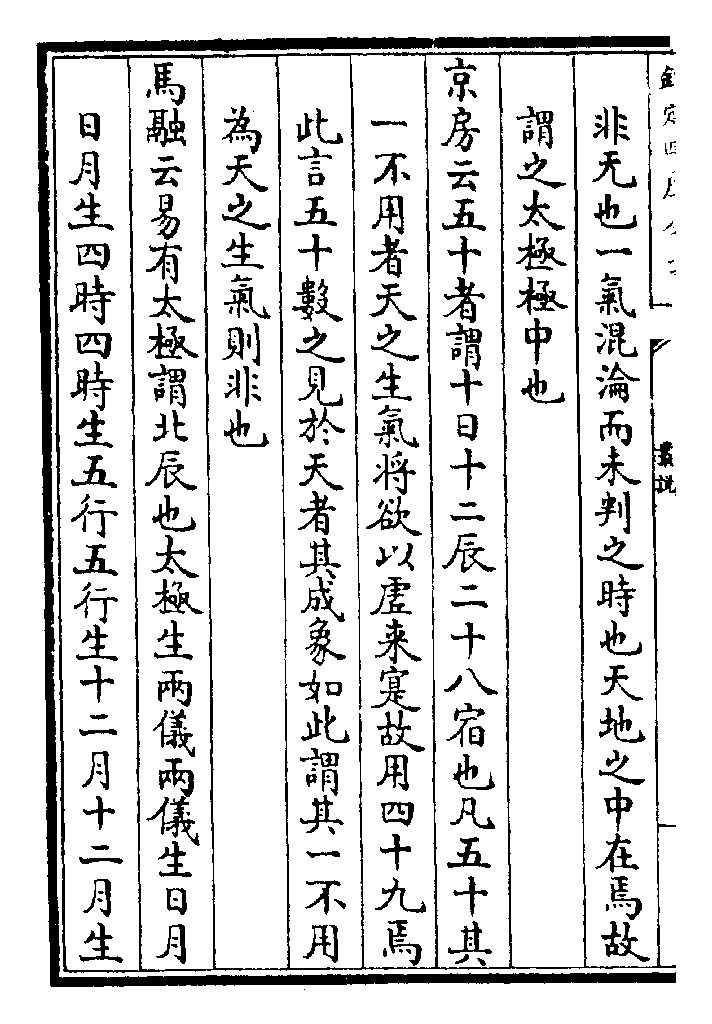 非无也一氣混淪而未判之時也天地之中在焉故
謂之太極極中也
京房云五十者謂十日十二辰二十八宿也凡五十其
一不用者天之生氣将欲以虚来寔故用四十九焉
此言五十數之見於天者其成象如此謂其一不用
為天之生氣則非也
馬融云易有太極謂北辰也太極生兩儀兩儀生日月
日月生四時四時生五行五行生十二月十二月生
叢說